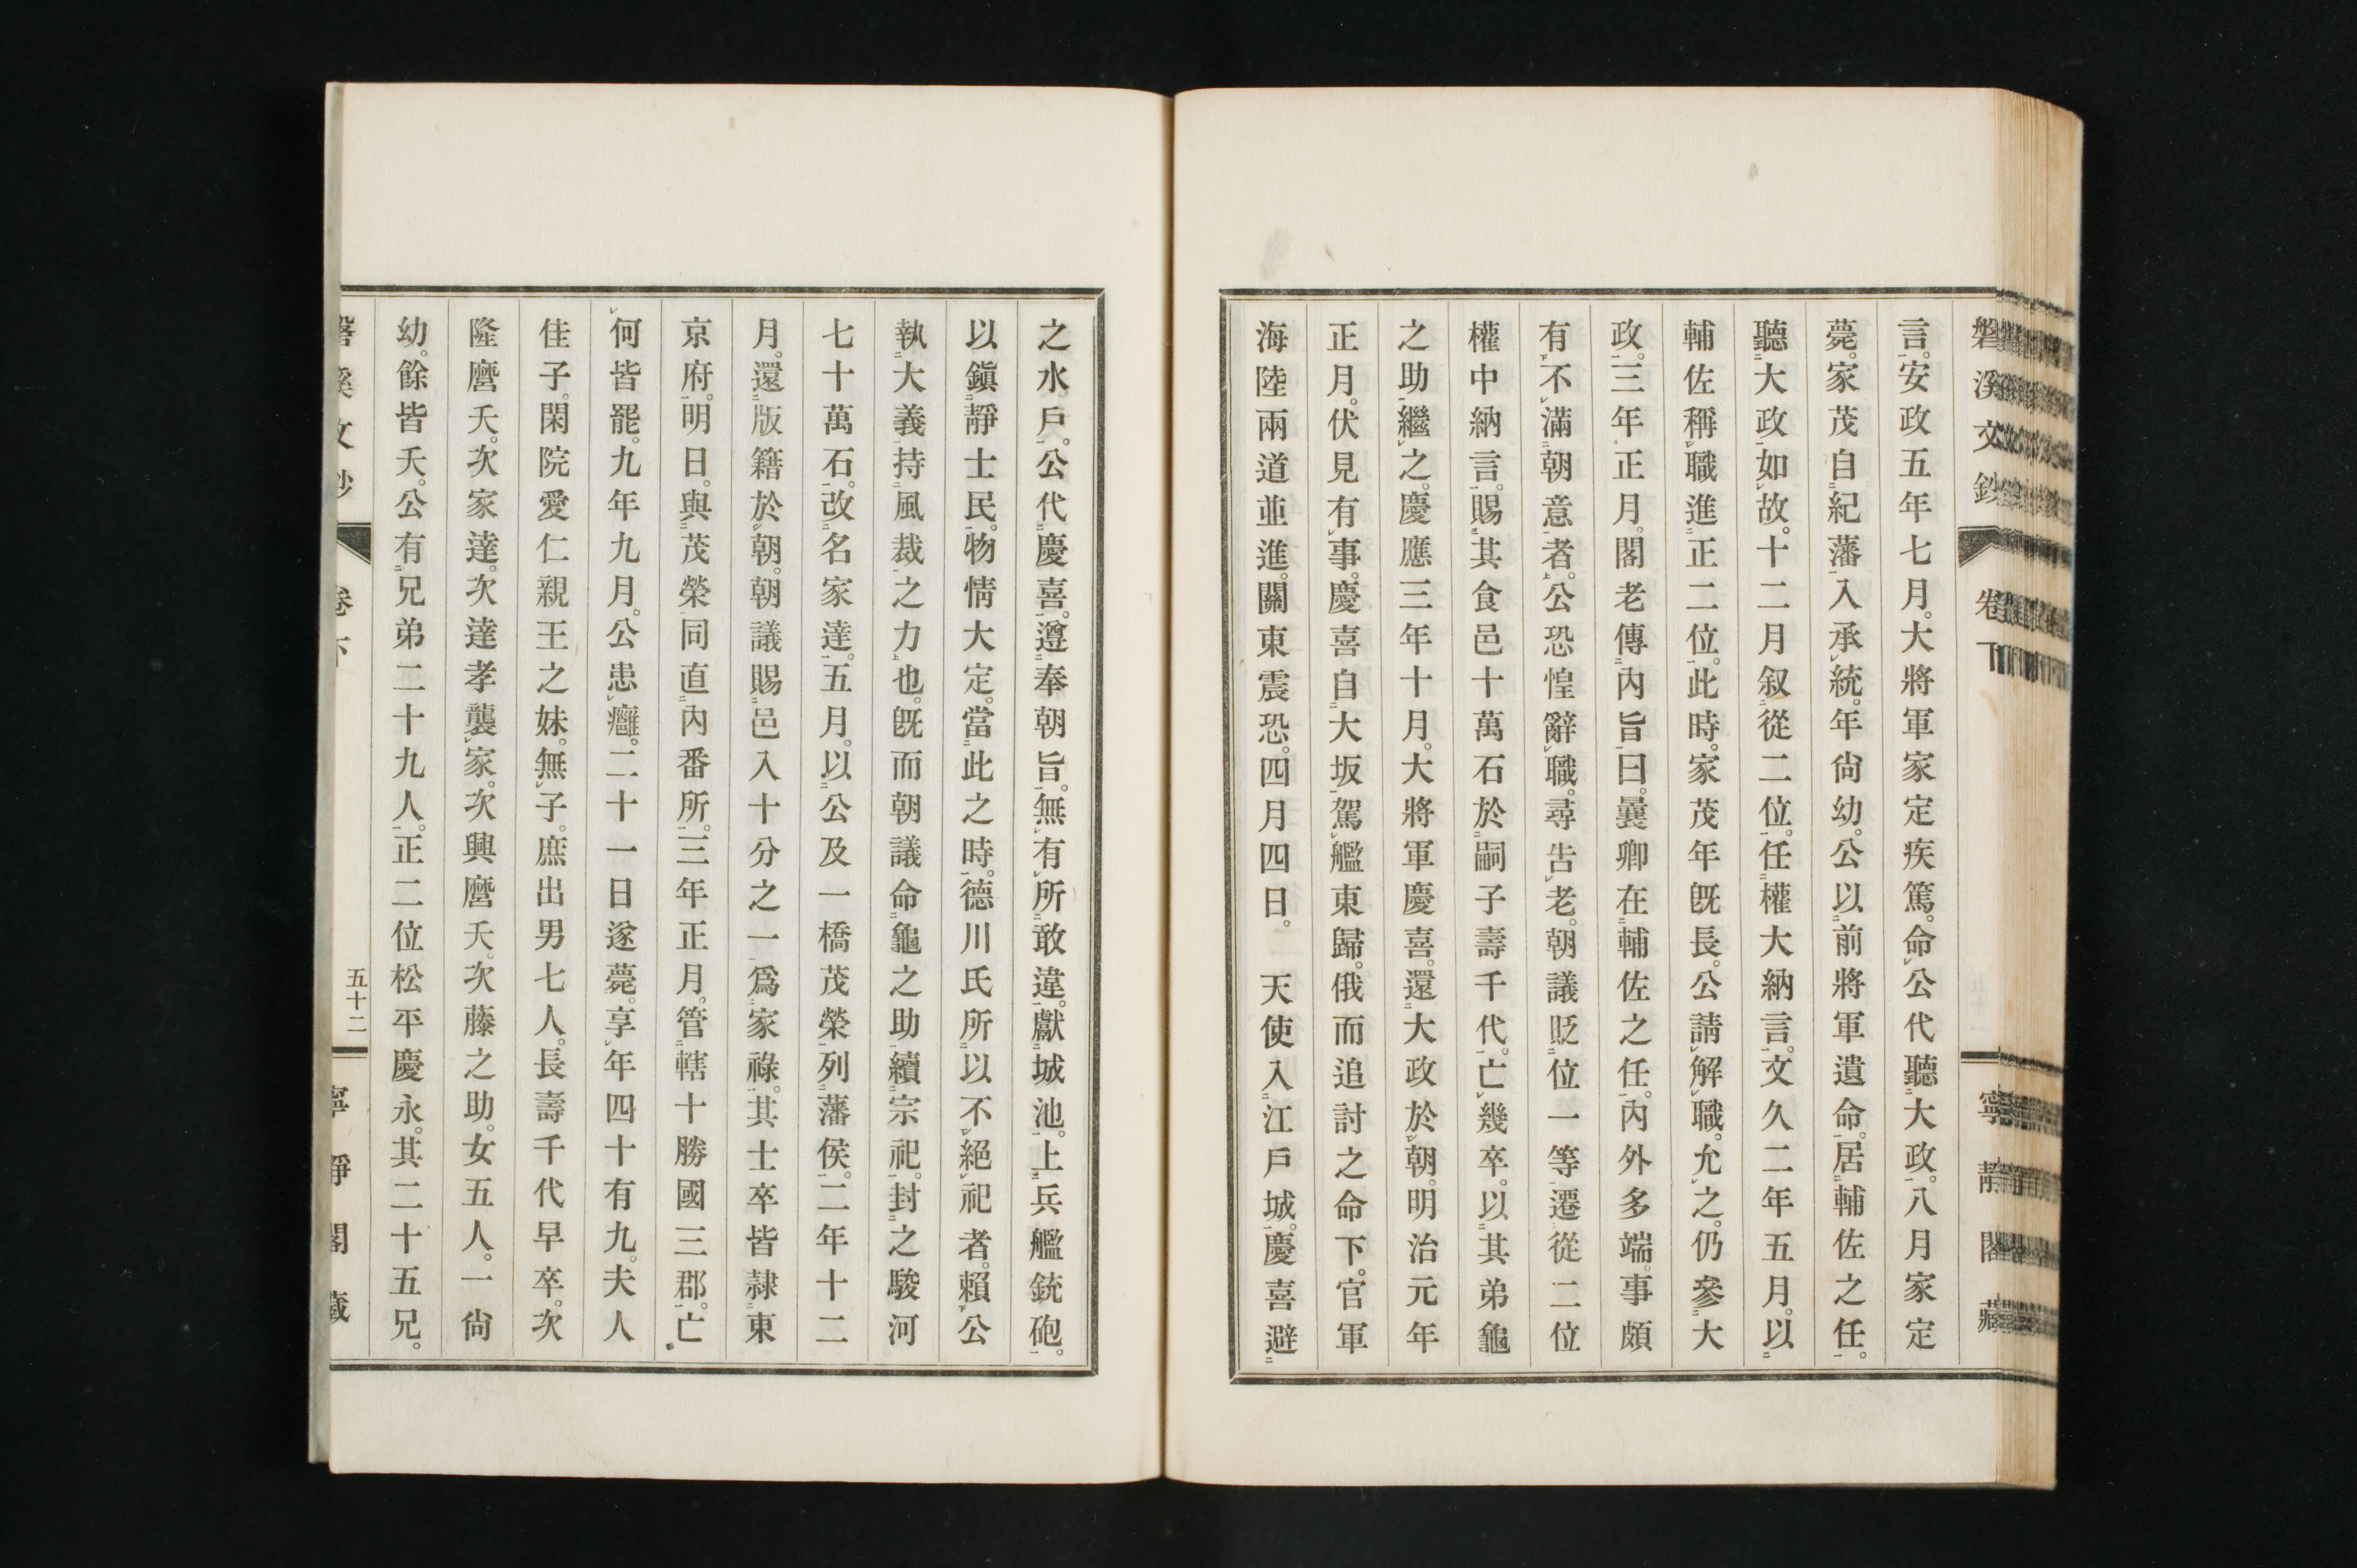 磐溪文鈔 卷下 寧靜閣藏
言。安政五年七月。大將軍家定疾篤。命公代聽大政。八月家定
薨。家茂自紀藩入承統。年尙幼。公以前將軍遺命。居輔佐之任。
聽大政如故。十二月叙從二位。任權大納言。文久二年五月。以
輔佐稱職進正二位。此時。家茂年既長。公請解職。允之。仍參大
政。三年正月。閣老傳內旨曰。曩卿在輔佐之任。內外多端。事頗
有不滿朝意者。公恐惶辭職。尋告老。朝議貶位一等。遷從二位
權中納言。賜其食邑十萬石於嗣子壽千代。亡幾卒。以其弟龜
之助繼之。慶應三年十月。大將軍慶喜。還大政於朝。明治元年
正月。伏見有事。慶喜自大坂駕艦東歸。俄而追討之命下。官軍
海陸兩道並進。關東震恐。四月四日。　天使入江戶城。慶喜避
之水戶。公代慶喜。遵奉朝旨。無有所敢違。獻城池。上兵艦銃砲。
以鎭靜士民。物情大定。當此之時。德川氏所以不絕祀者。賴公
執大義持風裁之力也。既而朝議命龜之助續宗祀。封之駿河
七十萬石。改名家達。五月。以公及一橋茂榮列藩侯。二年十二
月。還版籍於朝。朝議賜邑入十分之一爲家祿。其士卒皆隷東
京府。明日。與茂榮同直內番所。三年正月。管轄十勝國三郡。亡
何皆罷。九年九月。公患癰。二十一日遂薨。享年四十有九。夫人
佳子。閑院愛仁親王之妹。無子。庶出男七人。長壽千代早卒。次
隆麿夭。次家達。次達孝襲家。次興麿夭。次藤之助。女五人。一尙
幼。餘皆夭。公有兄弟二十九人。正二位松平慶永。其二十五兄。
磐溪文鈔 卷下 五十二 寧靜閣藏